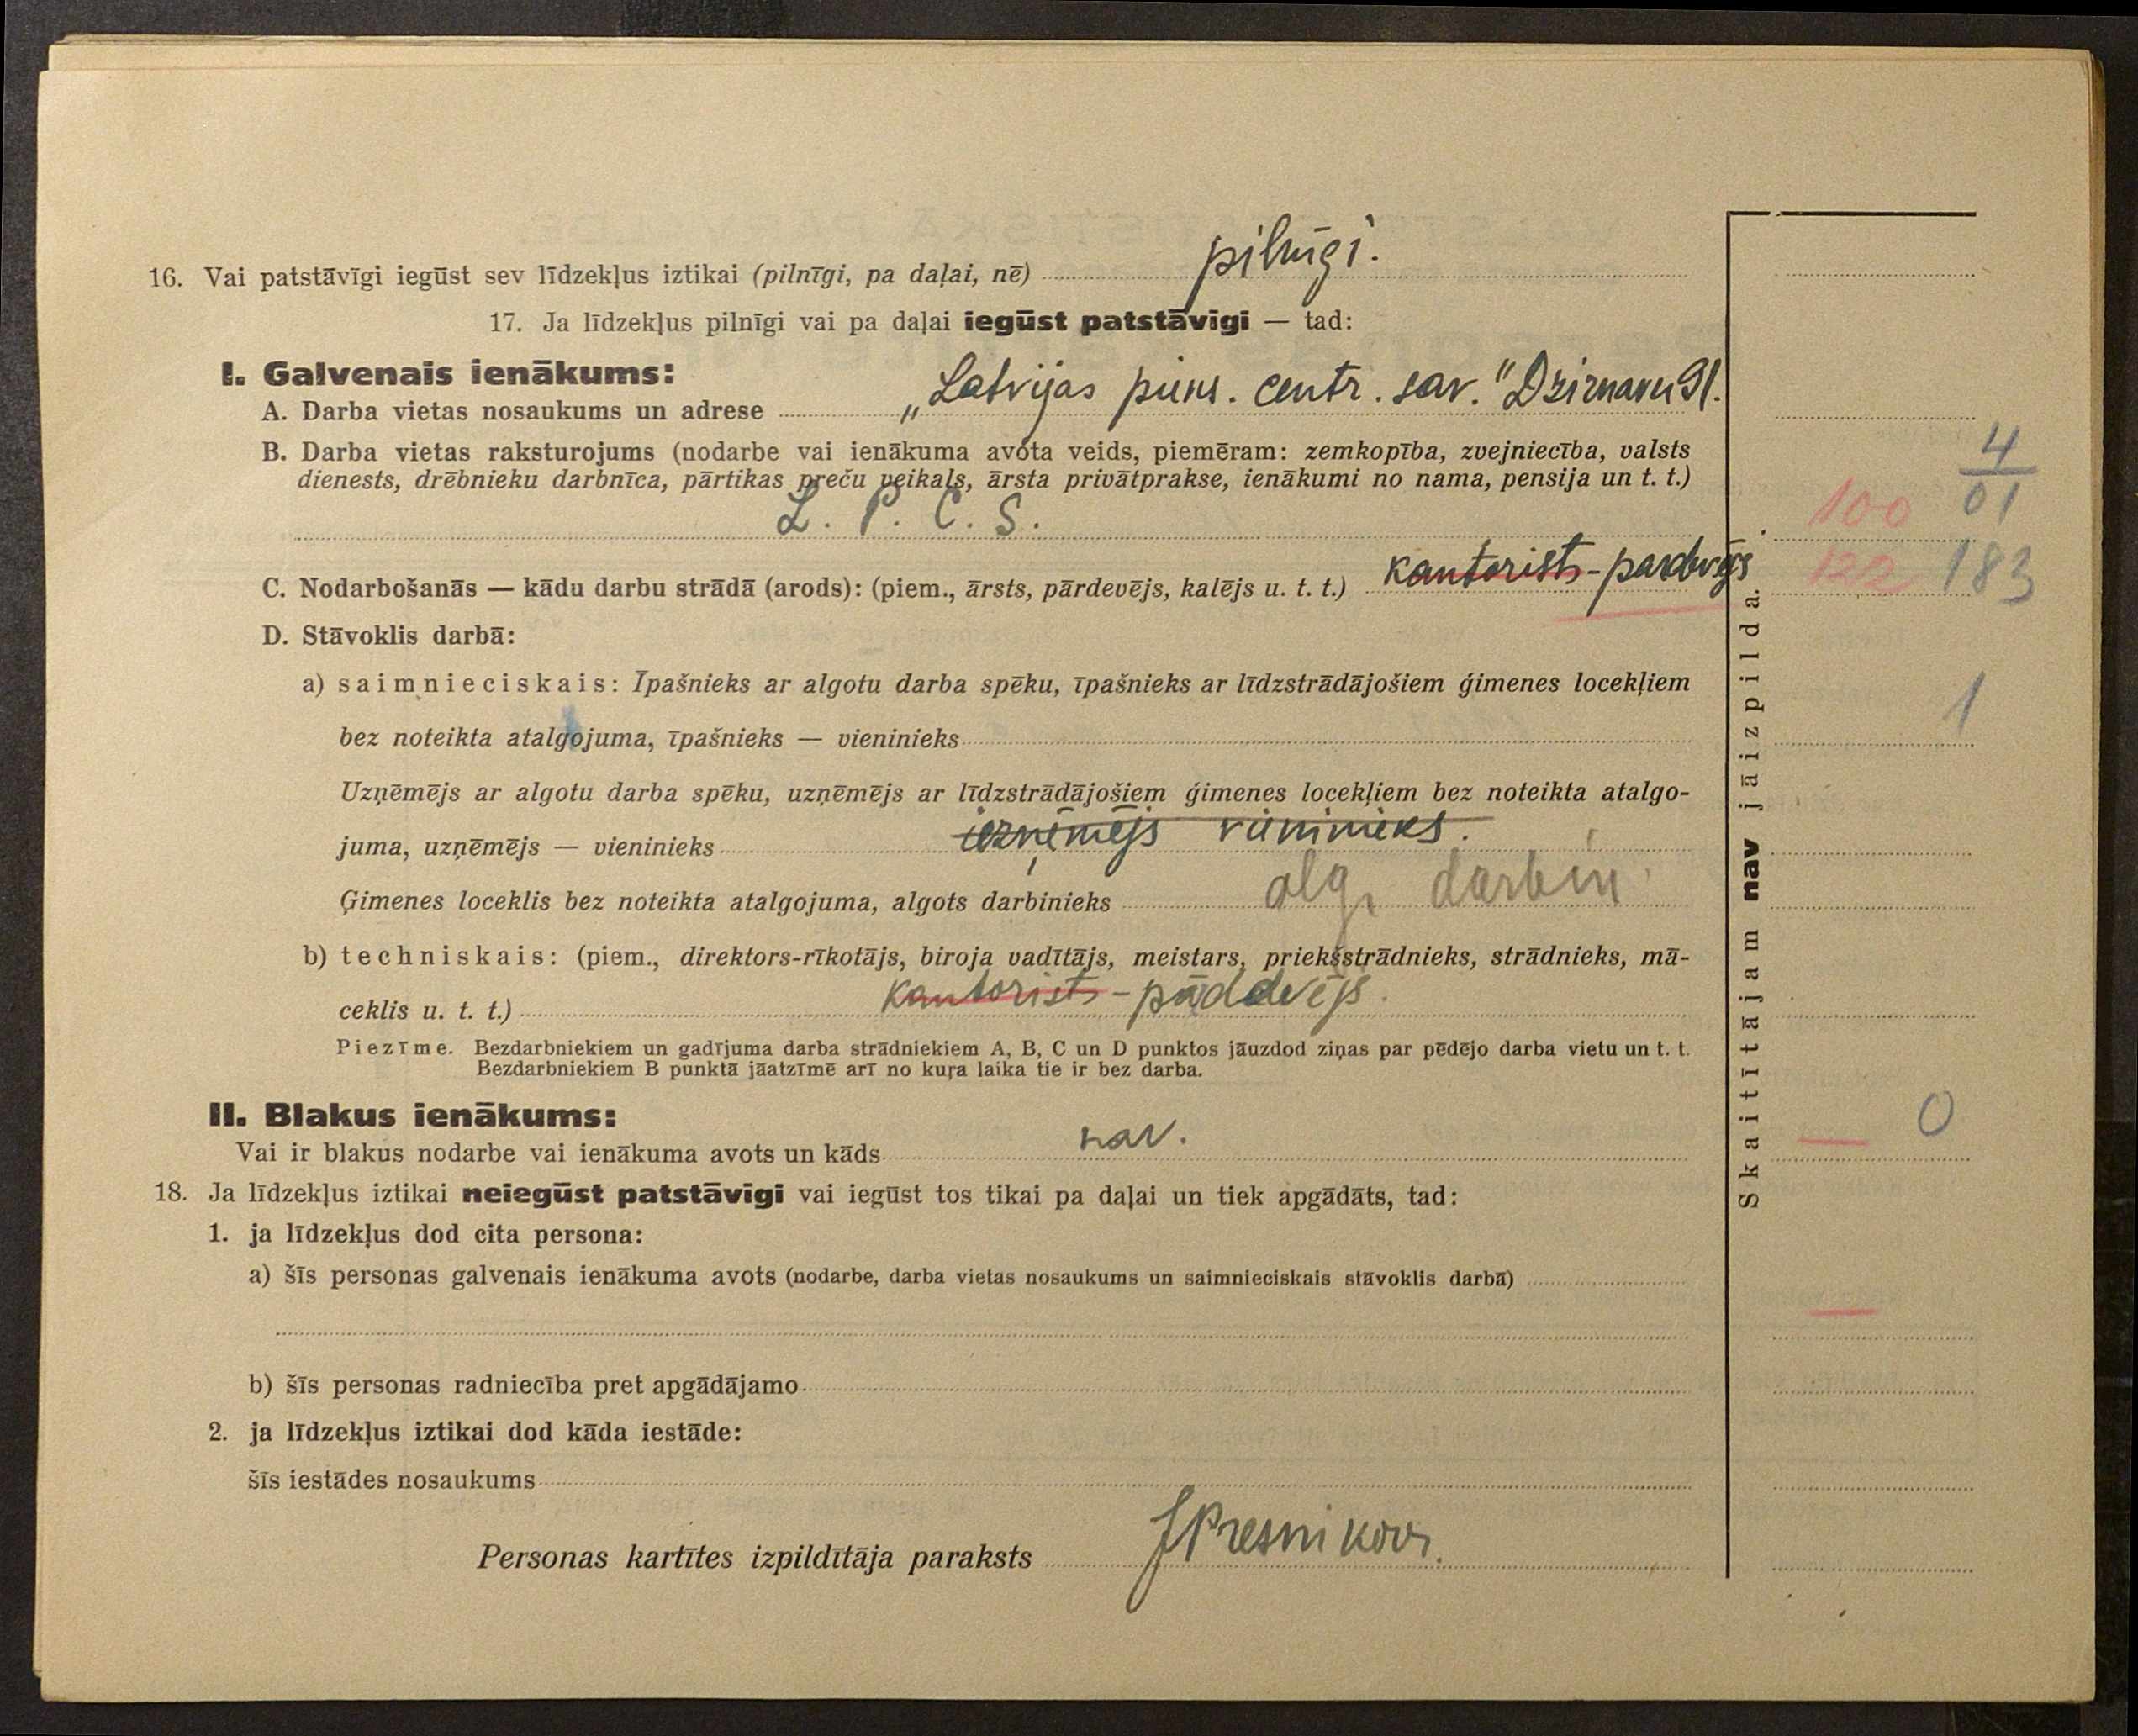 16. Vai patstāvīgi iegūst sev līdzekļus iztikai (pilnīgi, pa daļai, nē) pilnīgi.
17. Ja līdzekļus pilnīgi vai pa daļai iegūst patstāvīgi — tad:
I. Galvenais ienākums:
A. Darba vietas nosaukums un adrese „Latvijas piens. centr. sav." Dzirnavu 91.
B. Darba vietas raksturojums (nodarbe vai ienākuma avota veids, piemēram: zemkopība, zvejniecība, valsts
dienests, drēbnieku darbnīca, pārtikas preču veikals, ārsta privātprakse, ienākumi no nama, pensija un t. t.)
4
100 01
L. P. C. S.
C. Nodarbošanās — kādu darbu strādā (arods): (piem., ārsts, pārdevējs, kalējs u. t. t.) kantorists-pardevējs
122 183
D. Stāvoklis darbā:
a) saimnieciskais: Īpašnieks ar algotu darba spēku, īpašnieks ar līdzstrādājošiem ģimenes locekļiem
bez noteikta atalgojuma, īpašnieks — vieninieks
1
Uzņēmējs ar algotu darba spēku, uzņēmējs ar līdzstrādājošiem ģimenes locekļiem bez noteikta atalgo-
juma, uzņēmējs — vieninieks vieninieks.
Ģimenes loceklis bez noteikta atalgojuma, algots darbinieks alg. darbin
b) techniskais: (piem., direktors-rīkotājs, biroja vadītājs, meistars, priekšstrādnieks, strādnieks, mā-
ceklis u. t. t.) kantorists-pāddevējs.
Piezīme. Bezdarbniekiem un gadījuma darba strādniekiem A, B, C un D punktos jāuzdod ziņas par pēdējo darba vietu un t. t.
Bezdarbniekiem B punktā jāatzīmē arī no kuŗa laika tie ir bez darba.
II. Blakus ienākums:
0
Vai ir blakus nodarbe vai ienākuma avots un kāds nav.
18. Ja līdzekļus iztikai neiegūst patstāvīgi vai iegūst tos tikai pa daļai un tiek apgādāts, tad:
1. ja līdzekļus dod cita persona:
a) šīs personas galvenais ienākuma avots (nodarbe, darba vietas nosaukums un saimnieciskais stāvoklis darbā)
b) šīs personas radniecība pret apgādājamo
2. ja līdzekļus iztikai dod kāda iestāde:
šīs iestādes nosaukums
Personas kartītes izpildītāja paraksts JPresnikovs.
Skaitītājam nav jāizpilda.